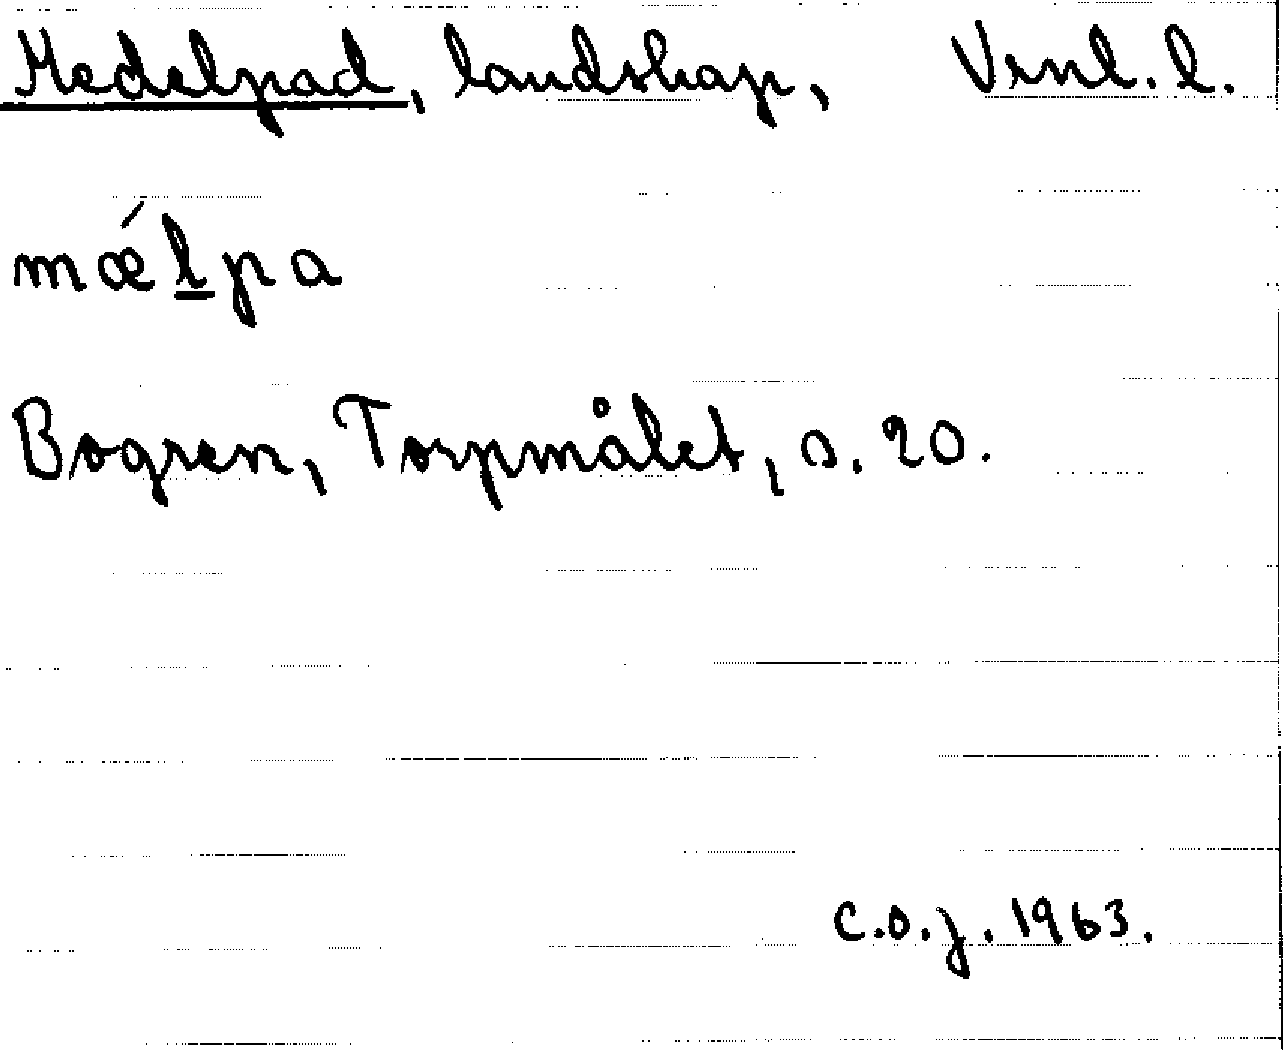 Medelpad, landskap, Vsnl. l.
mǽl̲pa
Bogren, Torpmålet, s. 20.
C.O.J. 1963.